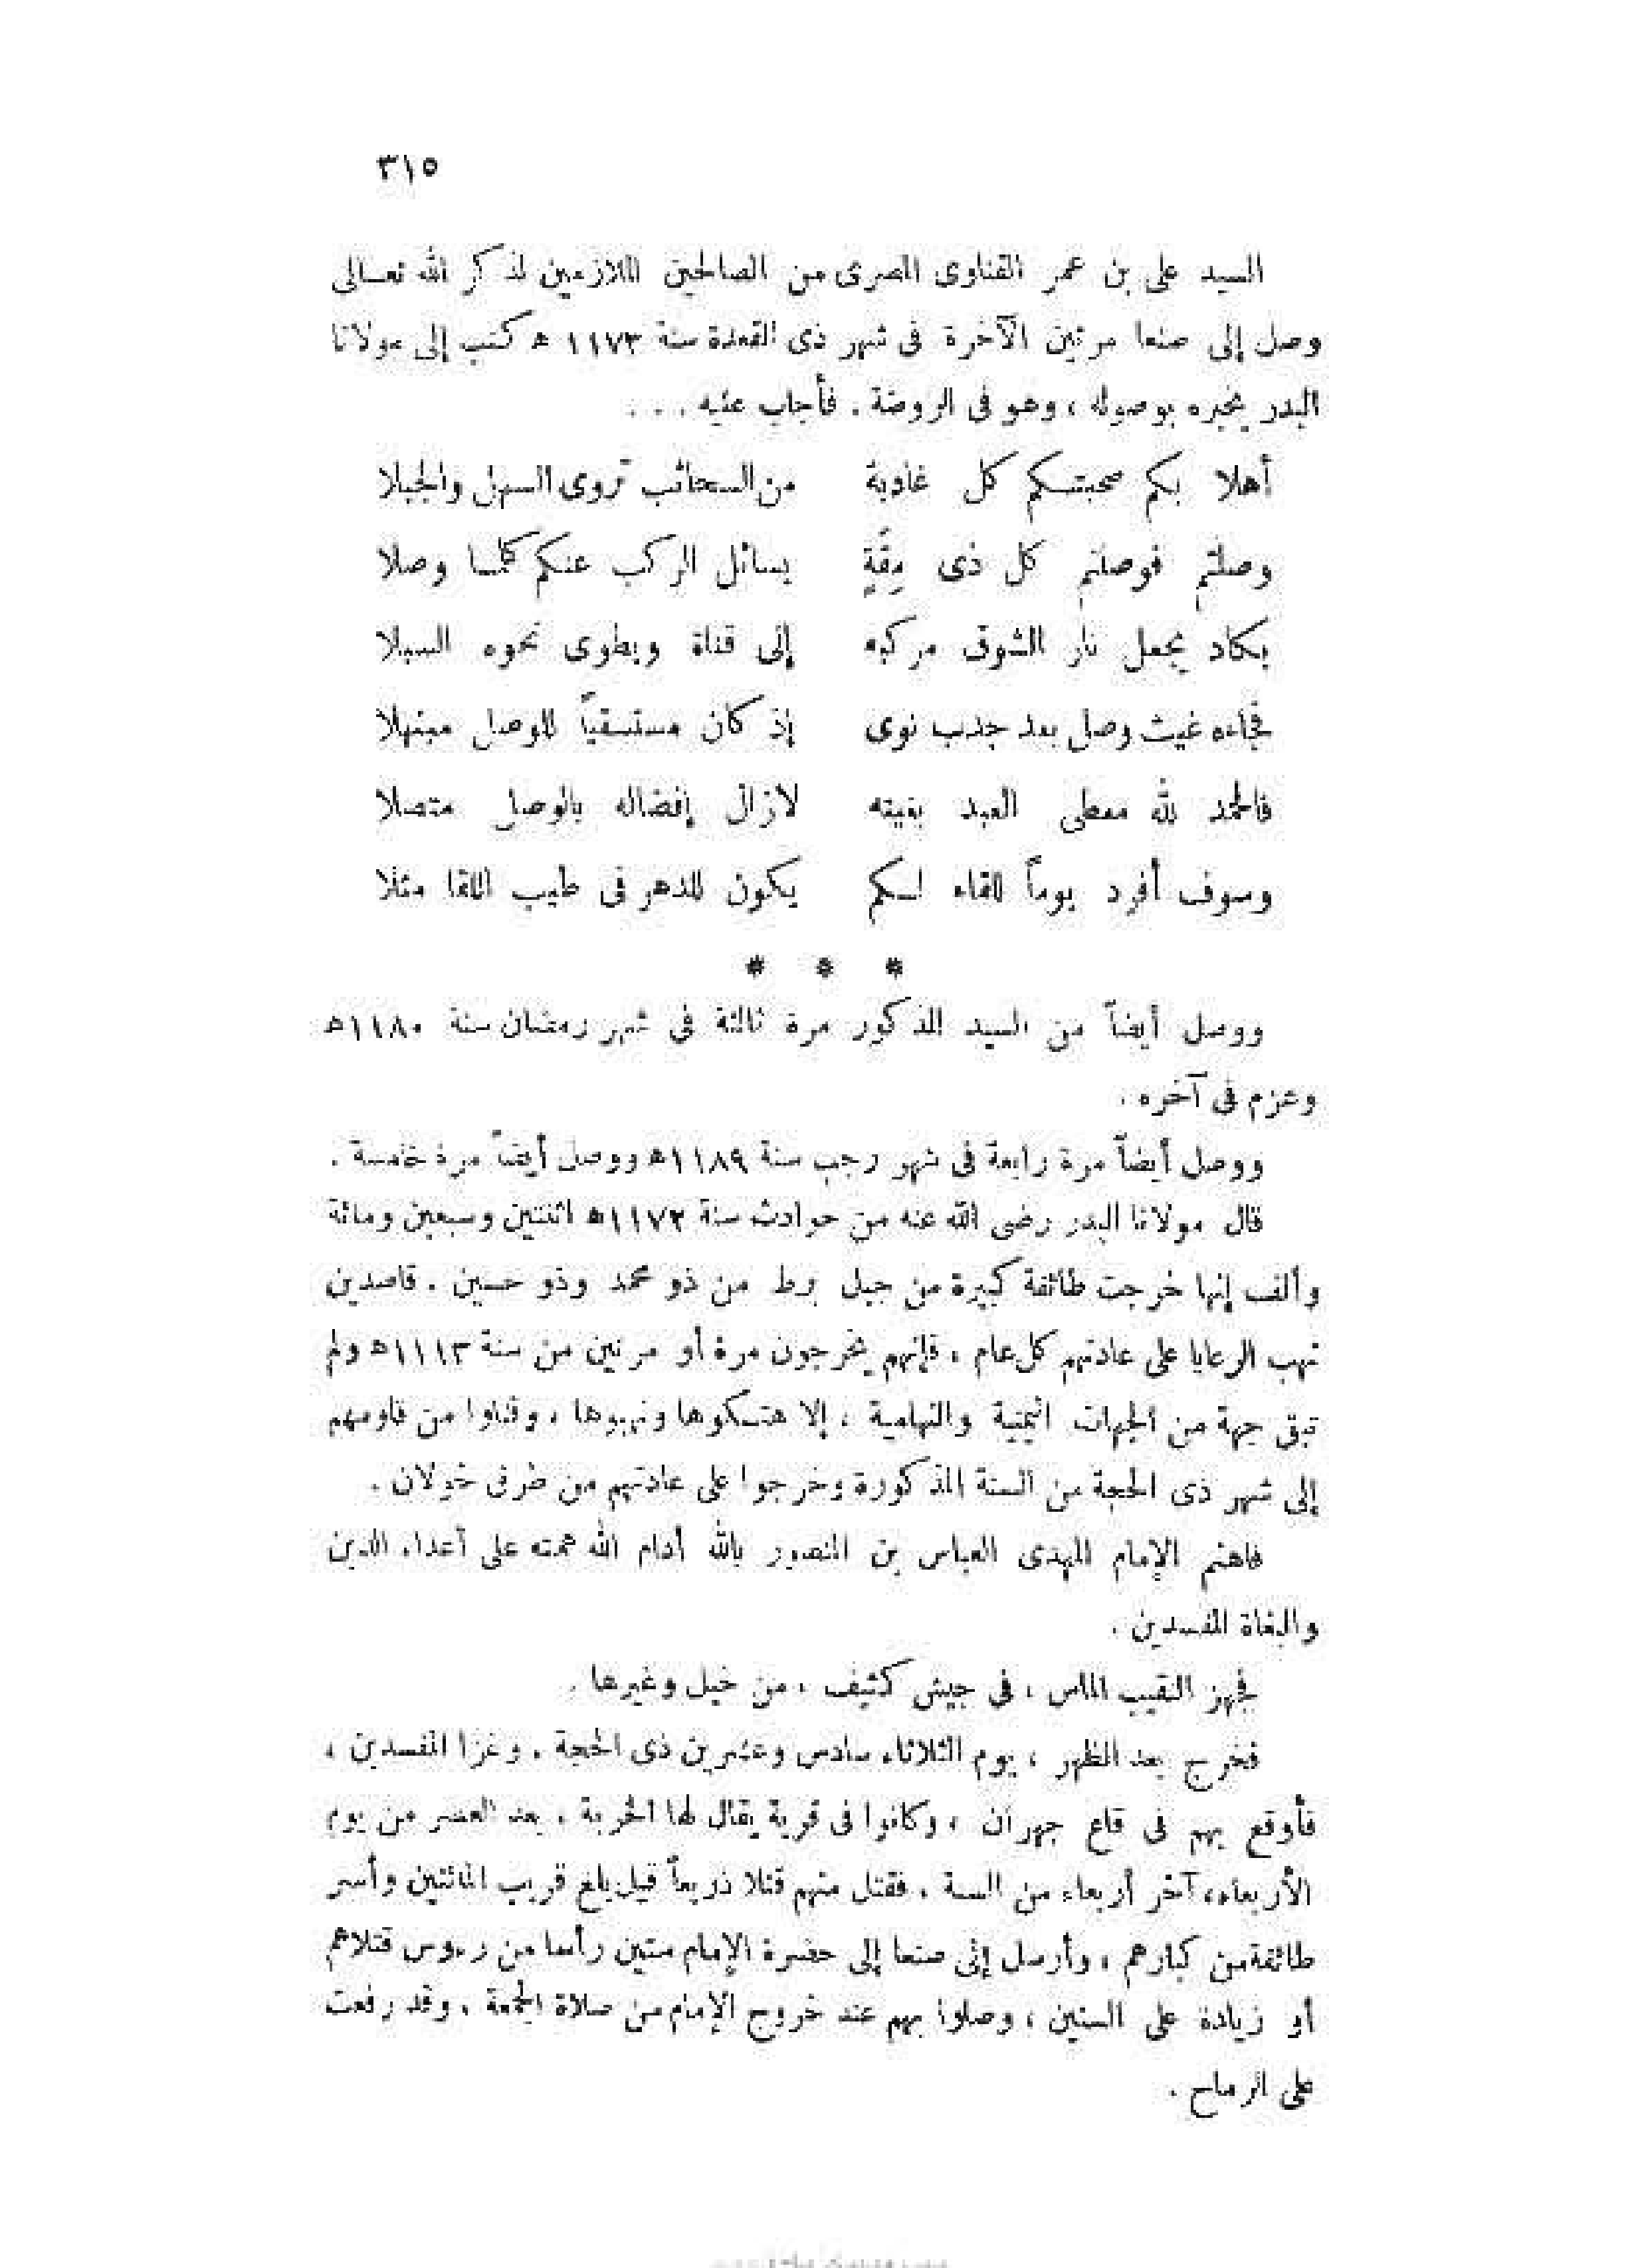 ٣١٥
السيد على بن عمر القناوى المصرى من الصالحين الملازمين لذكر الله تعالى
وصل إلى صنعا مرتين الآخرة فى شهر ذى القعدة سنة ١١٧٣ ه كتب إلى مولانا
البدر يخبره بوصوله ، وهو فى الروضة . فأجاب عليه . . .
أهلا بكم صحبتكم كل غادية من السحائب تروى السهل والجبلا
وصلتم فوصلتم كل ذى مِقَةٍ يسائل الركب عنكم كلما وصلا
يكاد يجعل نار الشوق مركبه إلى قناة ويطوى نحوه السبلا
فجاءه غيث وصل بعد جدب نوى إذ كان مستسقياً للوصل مبتهلا
فالحمد لله معطى العبد بغيته لازال إفضاله بالوصل متصلا
وسوف أفرد يوماً للقاء لكم يكون للدهر فى طيب اللقا مثلا
* * *
ووصل أيضاً من السيد المذكور مرة ثالثة فى شهر رمضان سنة ١١٨٠ه
وعزم فى آخره .
ووصل أيضاً مرة رابعة فى شهر رجب سنة ١١٨٩ه ووصل أيضاً مرة خامسة .
قال مولانا البدر رضى الله عنه من حوادث سنة ١١٧٢ه اثنتين وسبعين ومائة
وألف إنها خرجت طائفة كبيرة من جبل برط من ذو محمد وذو حسين . قاصدين
نهب الرعايا على عادتهم كل عام ، فإنهم يخرجون مرة أو مرتين من سنة ١١١٣ه ولم
تبق جهة من الجهات اليمنية والتهامية ، إلا هتكوها ونهبوها ، وقتلوا من قاومهم
إلى شهر ذى الحجة من السنة المذكورة وخرجوا على عادتهم من طرفى خولان .
فاهتم الإمام المهدى العباس بن المنصور بالله أدام الله همته على أعداء الدين
والبغاة المفسدين .
فجهز النقيب الماس ، فى جيش كثيف ، من خيل وغيرها .
فخرج بعد الظهر ، يوم الثلاثاء سادس وعشرين ذى الحجة . وغزا المفسدين ،
فأوقع بهم فى قاع جهران ، وكانوا فى قرية يقال لها الخربة . بعد العصر من يوم
الأربعاء، آخر أربعاء من السنة . فقتل منهم قتلا ذريعاً قيل يلغ قريب المائتين وأسر
طائفة من كبارهم ، وأرسل إلى صنعا إلى حضرة الإمام ستين رأسا من رءوس قتلاهم
أو زيادة على الستين ، وصلوا بهم عند خروج الإمام من صلاة الجمعة . وقد رفعت
على الرماح .